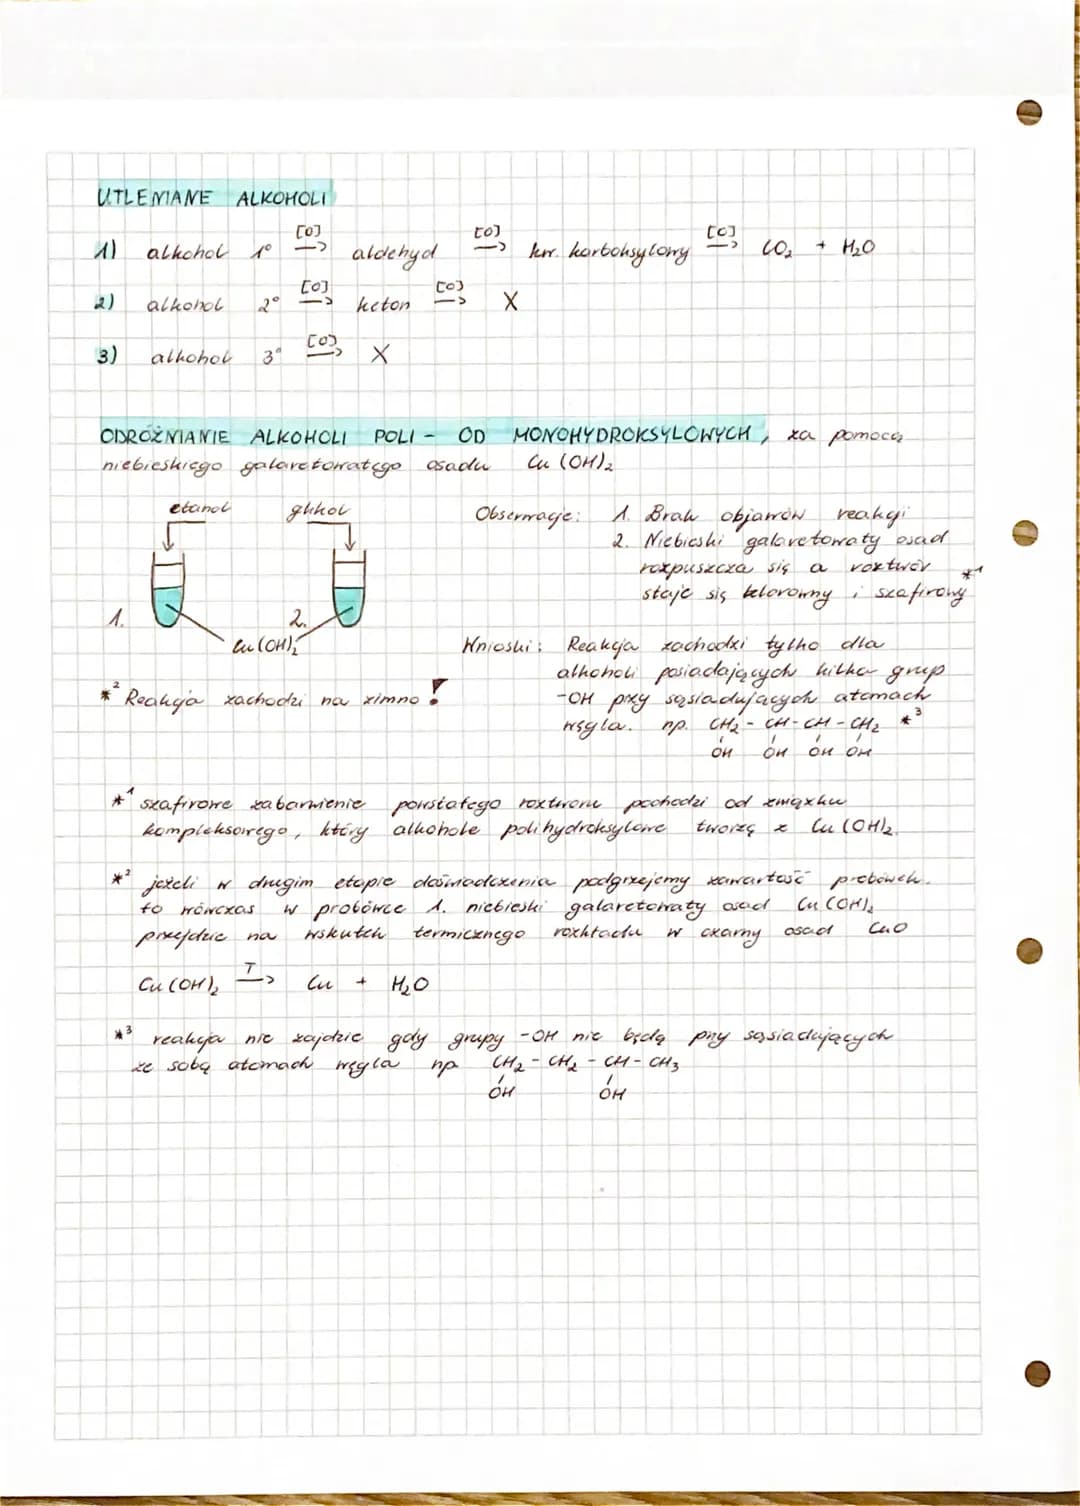 UTLENIANE ALKOHOLI
1) alkohol 1° [O] → aldehyd [O] → kw. karboksylowy [O] → CO₂ + H₂O
2) alkohol 2° [O] → keton [O] → X
3) alkohol 3° [O] → X
ODRÓŻNIANIE ALKOHOLI POLI - OD MONOHYDROKSYLOWYCH, za pomocą
niebieskiego galaretowatego osadu Cu(OH)₂
etanol glikol
1. 2.
Cu(OH)₂
Obserwacje: 1. Brak objawów reakcji
2. Niebieski galaretowaty osad
rozpuszcza się a roztwór
staje się klarowny i szafirowy *¹
Wnioski: Reakcja zachodzi tylko dla
alkoholi posiadających kilka grup
-OH przy sąsiadujących atomach
węgla. np. CH₂ - CH - CH - CH₂ *³
OH OH OH OH
*² Reakcja zachodzi na zimno!
*¹ szafirowe zabarwienie powstałego roztworu pochodzi od związku
kompleksowego, który alkohole polihydroksylowe tworzą z Cu(OH)₂.
*² jeżeli w drugim etapie doświadczenia podgrzejemy zawartość probówek.
to wówczas w probówce 1. niebieski galaretowaty osad Cu(OH)₂
przejdzie na wskutek termicznego rozkładu w czarny osad CuO
Cu(OH)₂ T → Cu + H₂O
*³ reakcja nie zajdzie gdy grupy -OH nie będą przy sąsiadujących
ze sobą atomach węgla np. CH₂ - CH₂ - CH - CH₃
OH OH